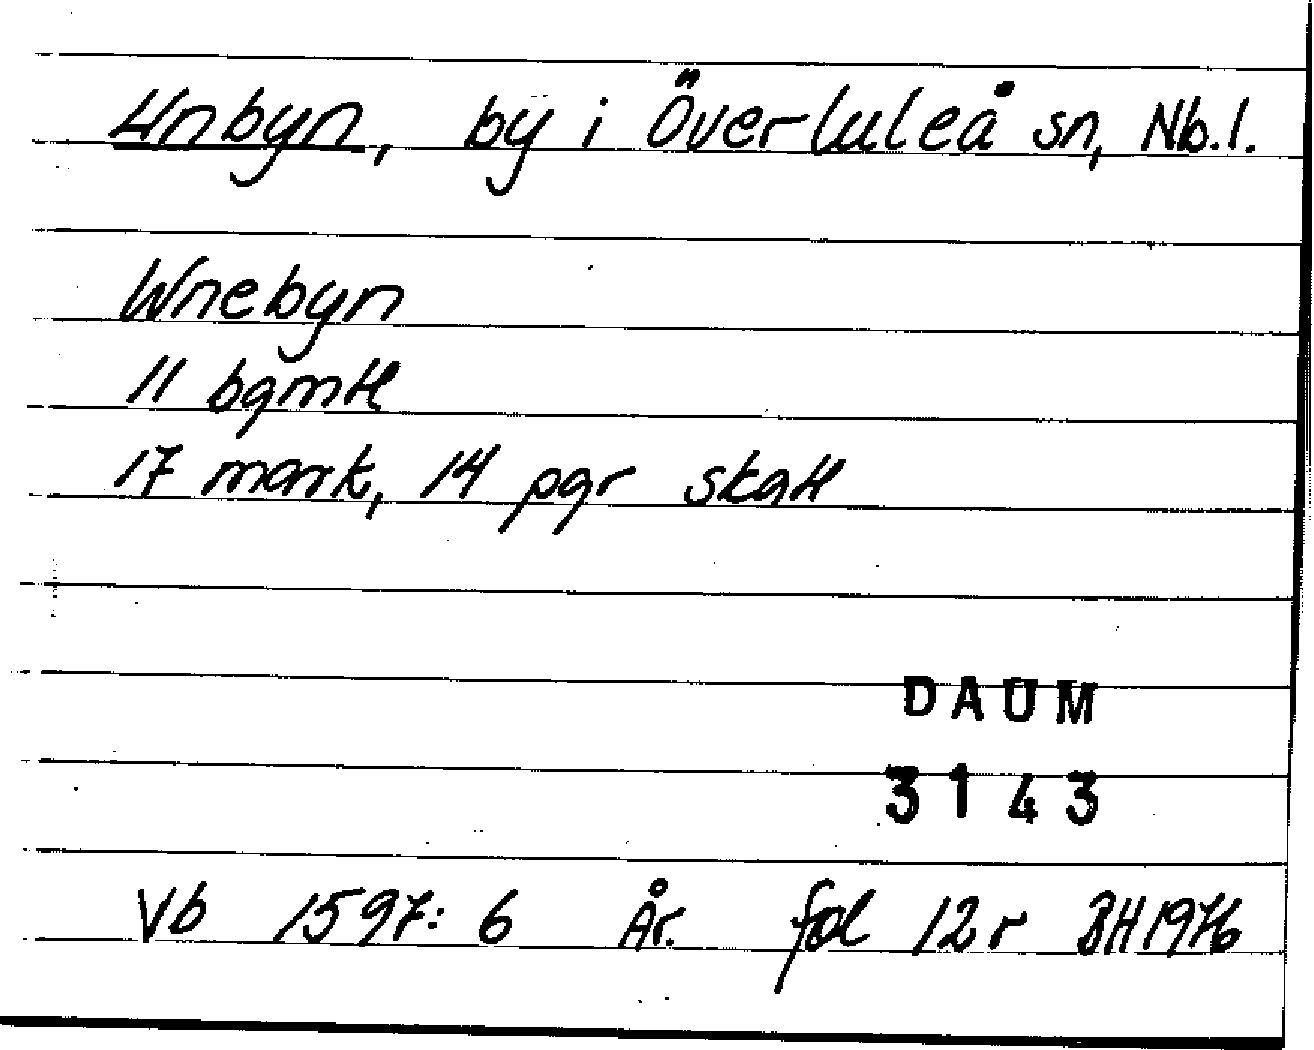 Unbyn, by i Överluleå sn, Nb.l.
Wnebyn
11 bgmtl
17 mark, 14 pgr skatt
DAUM
3143
Vb 1597: 6 År. fol 12r BH1976